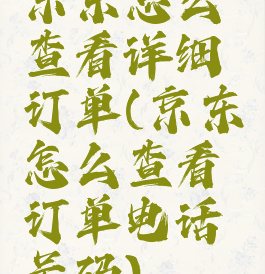 京东怎么
查看详细
订单(京东
怎么查看
订单电话
号码)